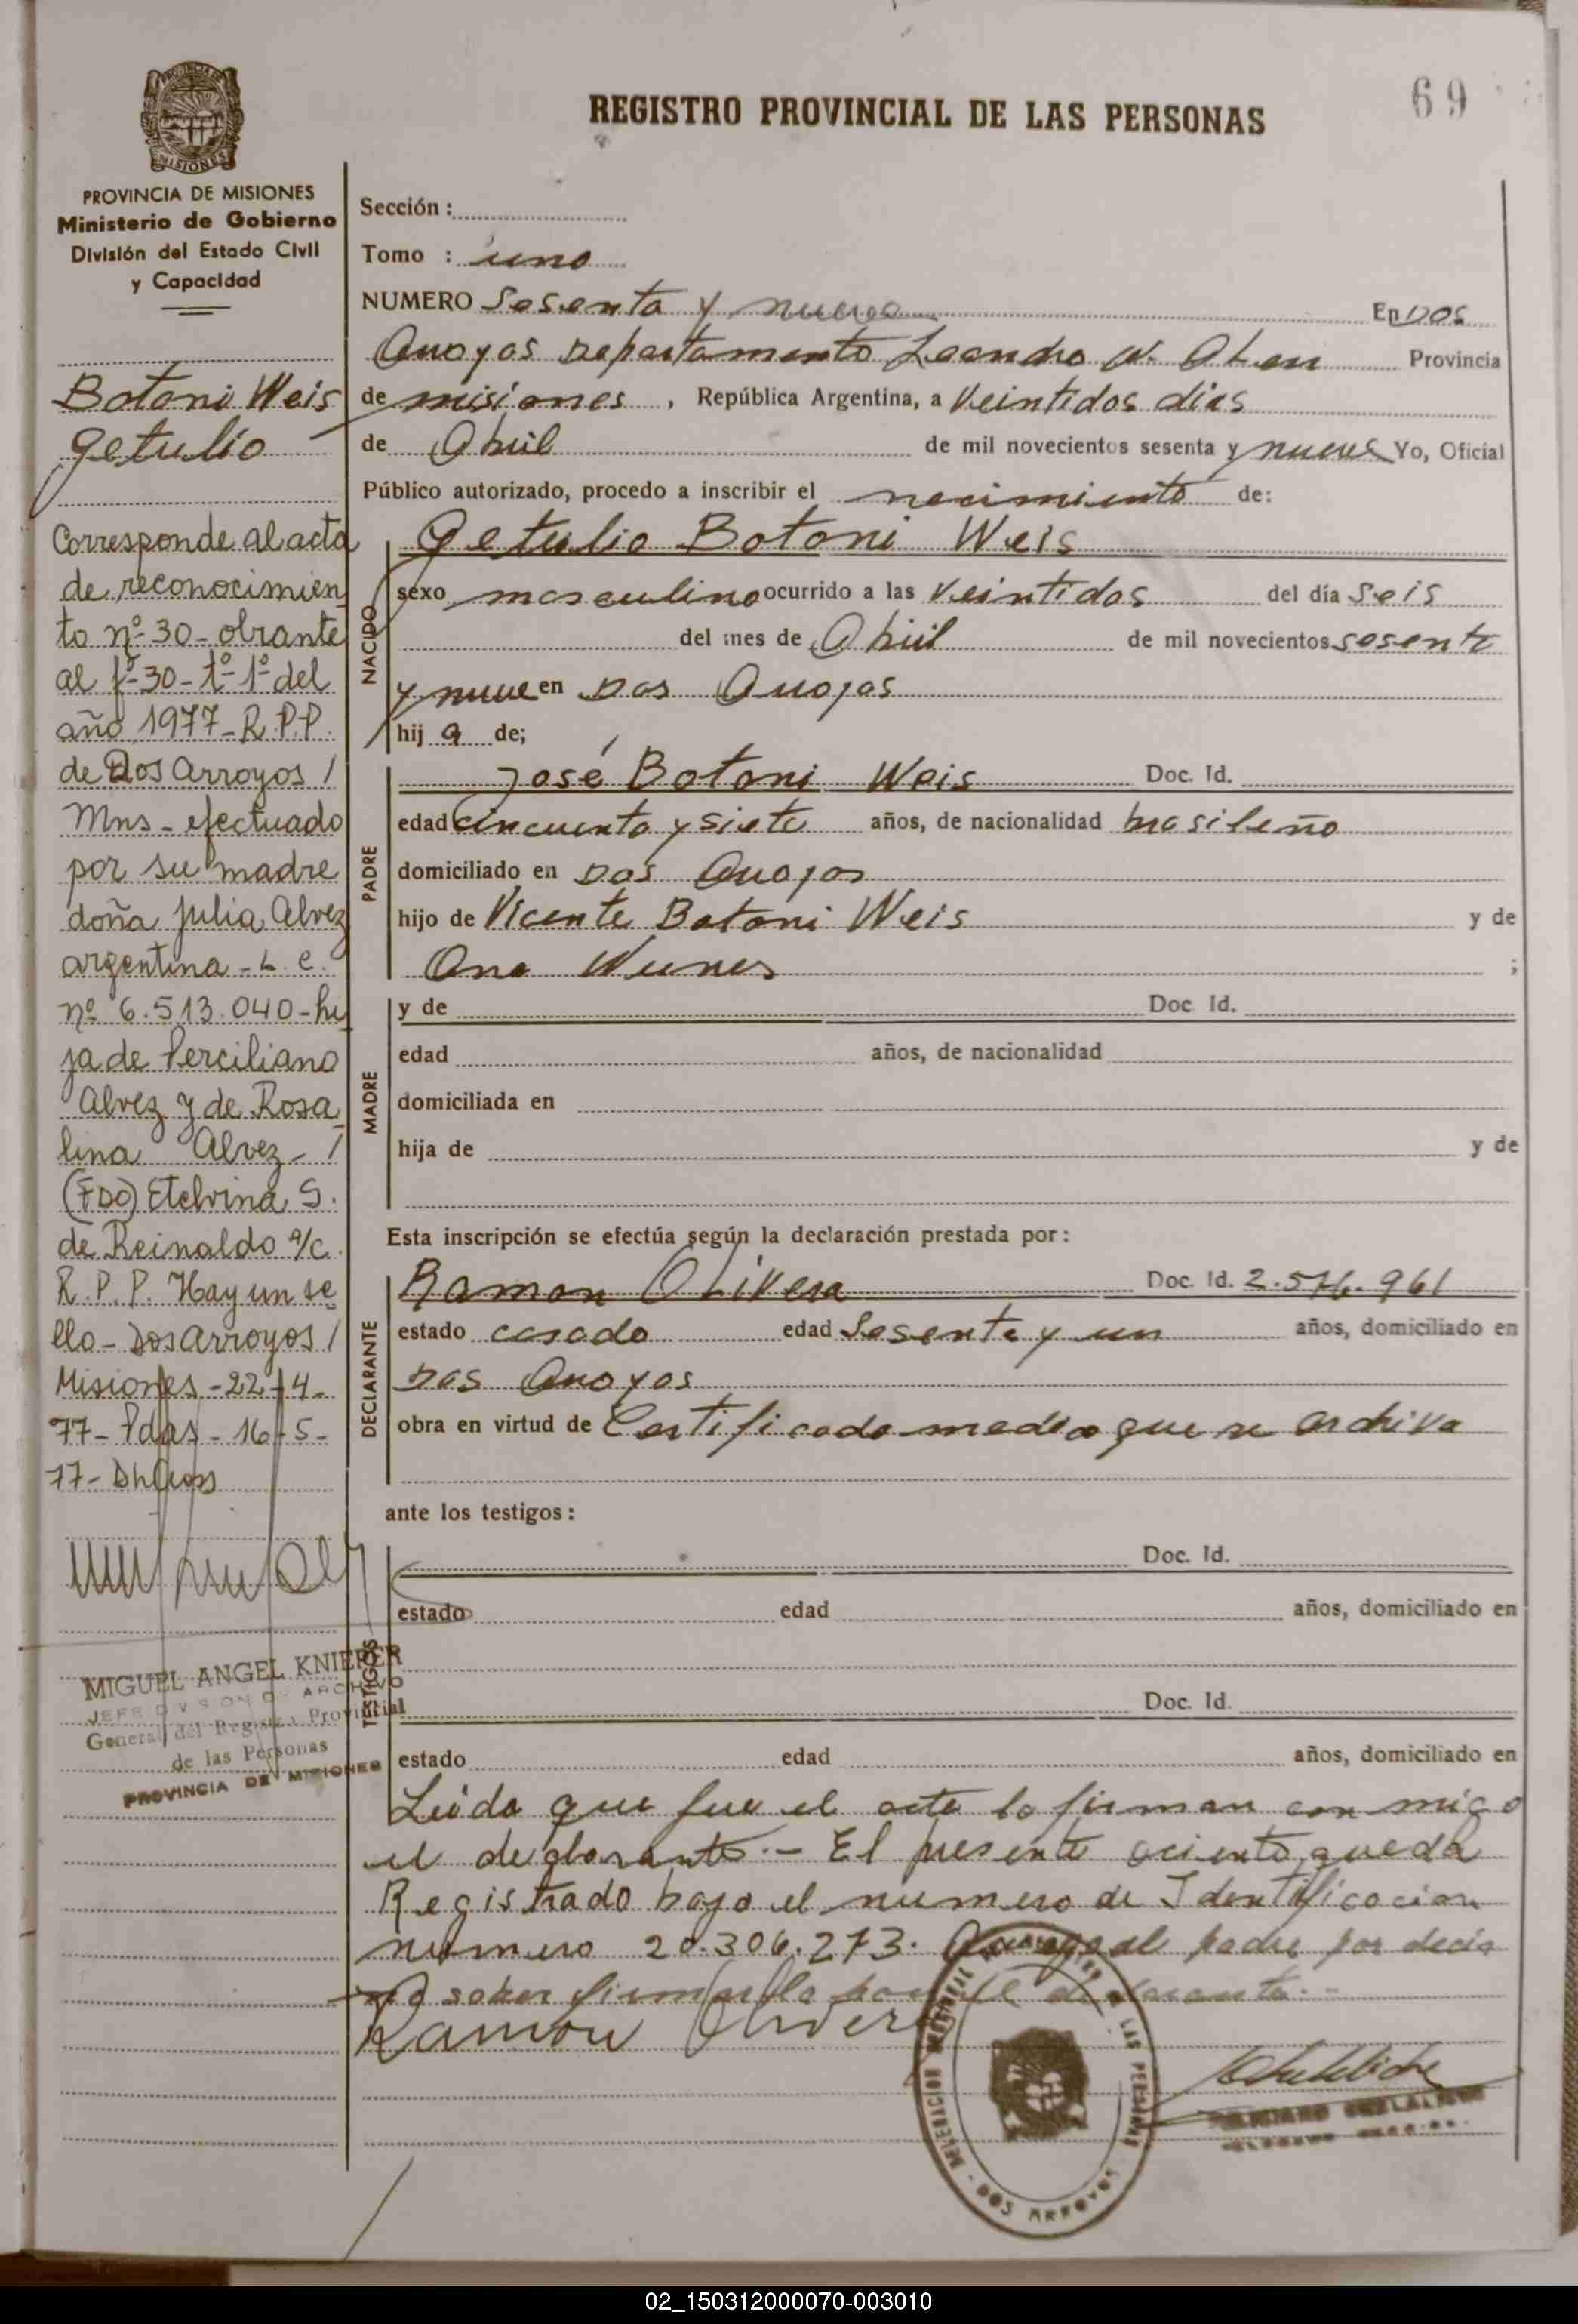 69
REGISTRO PROVINCIAL DE LAS PERSONAS
PROVINCIA DE MISIONES
Ministerio de Gobierno
División del Estado Civil
y Capacidad
Botoni Weis
Getulio
Corresponde al acta
de reconocimien
to nº 30 - obrante
al fº 30 - tº 1º del
año 1977 - R.P.P.
de Dos Arroyos /
Mns - efectuado
por su madre
doña Julia Alvez
argentina - L. C.
nº 6.513.040 - hi
ja de Perciliano
Alvez y de Rosa
lina Alvez - /
(FDO) Etelvina S.
de Reinaldo a/c
R. P. P. Hay un se
llo - Dos Arroyos /
Misiones - 22-4-
77 - Pdas - 16-5-
77 -
MIGUEL ANGEL KNIEPER
JEFE DIVISION ARCHIVO
General del Registro Provincial
de las Personas
PROVINCIA DE MISIONES
Sección :
Tomo : uno
NUMERO Sesenta y nueve En Dos
Arroyos Departamento Leandro N. Alem Provincia
de misiones , República Argentina, a Veintidos dias
de Abril de mil novecientos sesenta y nueve Yo, Oficial
Público autorizado, procedo a inscribir el nacimiento de:
NACIDO
Getulio Botoni Weis
sexo masculino ocurrido a las Veintidos del día Seis
del mes de Abril de mil novecientos sesenta
y nueve en Dos Arroyos
hij o de;
PADRE
José Botoni Weis Doc. Id.
edad cincuenta y siete años, de nacionalidad brasileño
domiciliado en Dos Arroyos
hijo de Vicente Botoni Weis y de
Ana Nunes ;
MADRE
y de Doc. Id.
edad años, de nacionalidad
domiciliada en
hija de y de
Esta inscripción se efectúa según la declaración prestada por :
DECLARANTE
Ramon Olivera Doc. Id. 2.576.961
estado casado edad Sesenta y un años, domiciliado en
Dos Arroyos
obra en virtud de Certificado medico que se archiva
ante los testigos :
TESTIGOS
Doc. Id.
estado edad años, domiciliado en
Doc. Id.
estado edad años, domiciliado en
Leida que fue el acta la firman con migo
el declarante.- El presente aciento queda
Registrado bajo el numero de Identificacion
numero 20.306.273. A ruego al padre por decir
no saber firmar lo hace el declarante.-
Ramon Olivera
DOS ARROYOS
02_150312000070-003010